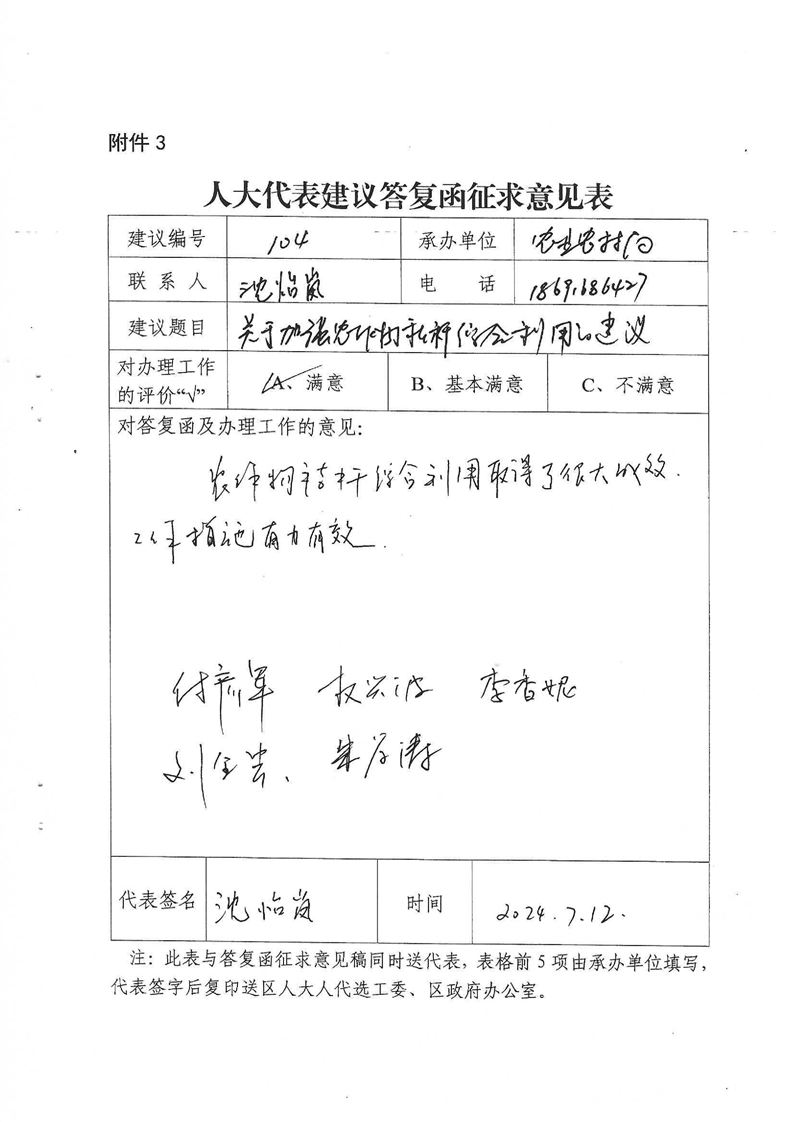 附件3
人大代表建议答复函征求意见表
建议编号 104 承办单位 农业农村局
联系人 沈怡岚 电话 18691686427
建议题目 关于加强农作物秸秆综合利用的建议
对办理工作的评价“√” A、满意 B、基本满意 C、不满意
对答复函及办理工作的意见：
农作物秸秆综合利用取得了很大成效.
工作措施有力有效.
李香妮
代表签名 沈怡岚 时间 2024.7.12.
注：此表与答复函征求意见稿同时送代表，表格前5项由承办单位填写，
代表签字后复印送区人大人代选工委、区政府办公室。